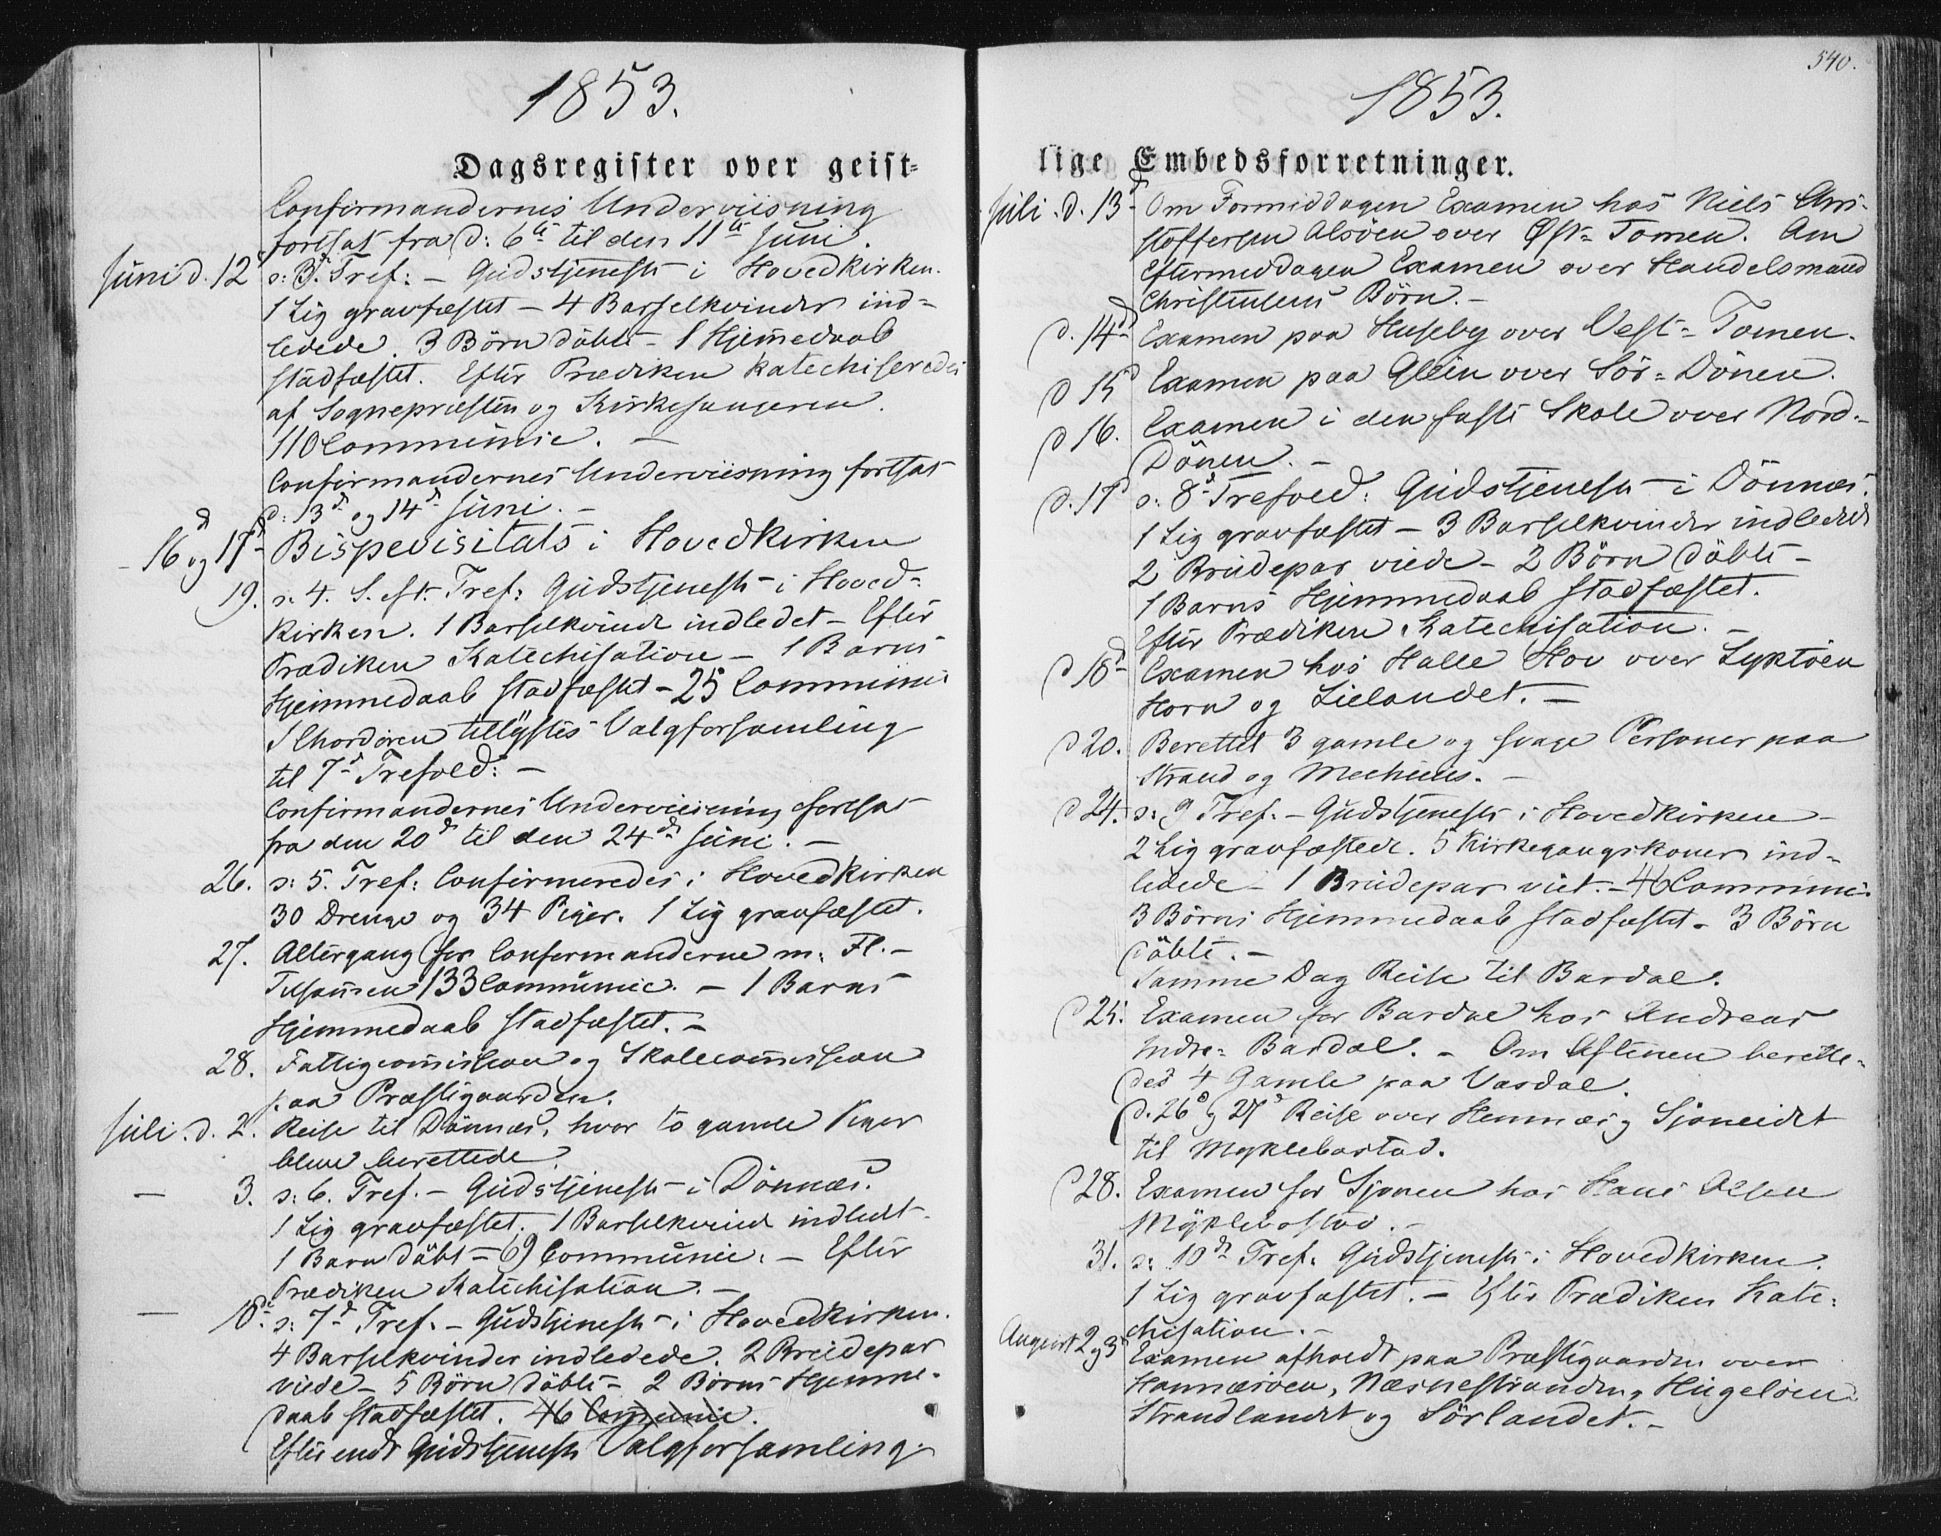 1853.
Dagsregister over geist-
Confirmandernes Underviisning
fortsat fra d: 6te til den 11te Juni.
Juni d. 12 s: 3d. Tref: - Gudstjeneste i Hovedkirken.
1 Lig gravfæstet - 4 Barselkvinder ind-
ledede. 3 Børn døbte - 1 Hjemmedaab
stadfæstet. Efter Prædiken katechiseredes
af Sognepræsten og Kirkesangeren.
110 Communic. -
Confirmandernes Underviisning fortsat
d: 13de og 14de Juni. -
- 16d og 17d Bispevisitats i Hovedkirken
19. s. 4. S. eft. Tref: Gudstjeneste i Hoved-
kirken. 1 Barselkvinde indledet - Efter
Prædiken Katechisation - 1 Barns
Hjemmedaab stadfæstet - 25 Communic
I Chordøren tillystes Valgforsamling
til 7d Trefold: -
Confirmandernes Underviisning fortsat
fra den 20d til den 24de Juni. -
26. s: 5. Tref: Confirmeredes i Hovedkirken
30 Drenge og 34 Piger. 1 Lig gravfæstet.
27. Altergang for Confirmanderne m: Fl. -
Tilsammen 133 Communic. - 1 Barns
Hjemmedaab stadfæstet. -
28. Fattigcommission og Skolecommission
paa Præstegaarden.
Juli. d. 2. Reise til Dönnæs, hvor to gamle Piger
bleve berettede.
- 3. s: 6. Tref. - Gudstjeneste i Dönnæs.
1 Lig gravfæstet. 1 Barselkvinde indledt.
1 Barn döbt - 69 Communic. - Efter
Prædiken Katechisation. -
- 10de. s: 7d Tref. - Gudstjeneste i Hovedkirken.
4 Barselkvinder indledede. 2 Brudepar
viede - 5 Børn døbte - 2 Børns Hjemme-
daab stadfæstet. 46 Communic.
Efter endt Gudstjeneste Valgforsamling.
540.
1853.
lige Embedsforretninger.
Juli. d. 13d Om Formiddagen Examen hos Niels Chri-
stoffersen Alsöen over Øst-Tomen. Om
Eftermiddagen Examen over Handelsmand
Christensens Börn. -
d. 14d Examen paa Huseby over Vest-Tomen.
d 15d Examen paa Glein over Sör-Dönen.
d 16. Examen i den faste Skole over Nord-
Dönen. -
d. 17d s: 8d Trefold: Gudstjeneste i Dönnæs.
1 Lig gravfæstet - 3 Barselkvinder indledede
2 Brudepar viede - 2 Börn döbte -
1 Barns Hjemmedaab stadfæstet.
Efter Prædiken Katechisation. -
d 18d Examen hos Halle Hov over Lyktöen
Horn og Lielandet. -
d 20. Berettet 3 gamle og svage Personer paa
Strand og -
d 24. s: 9 Tref. - Gudstjeneste i Hovedkirken -
2 Lig gravfæstede. 5 Kirkegangskoner ind-
ledede - 1 Brudepar viet. - 46 Communic.
3 Børns Hjemmedaab stadfæstet - 3 Börn
döbte. -
Samme Dag Reise til Bardal.
d 25. Examen for Bardal hos Andreas
Indre-Bardal. - Om Aftenen berette-
des 4 Gamle paa Vasdal.
d. 26d og 27d Reise over Hemnæs og Sjoneidet
til Myklebostad.
d 28. Examen for Sjonen hos Hans Olsen
Myklebostad. -
31. s: 10de Tref: Gudstjeneste i Hovedkirken.
1 Lig gravfæstet. - Efter Prædiken Kate-
chisation. -
August 2 og 3d Examen afholdt paa Præstegaarden over
Hannæsöen, Næsnestranden, Hugelöen
Strandlandet og Sörlandet. -